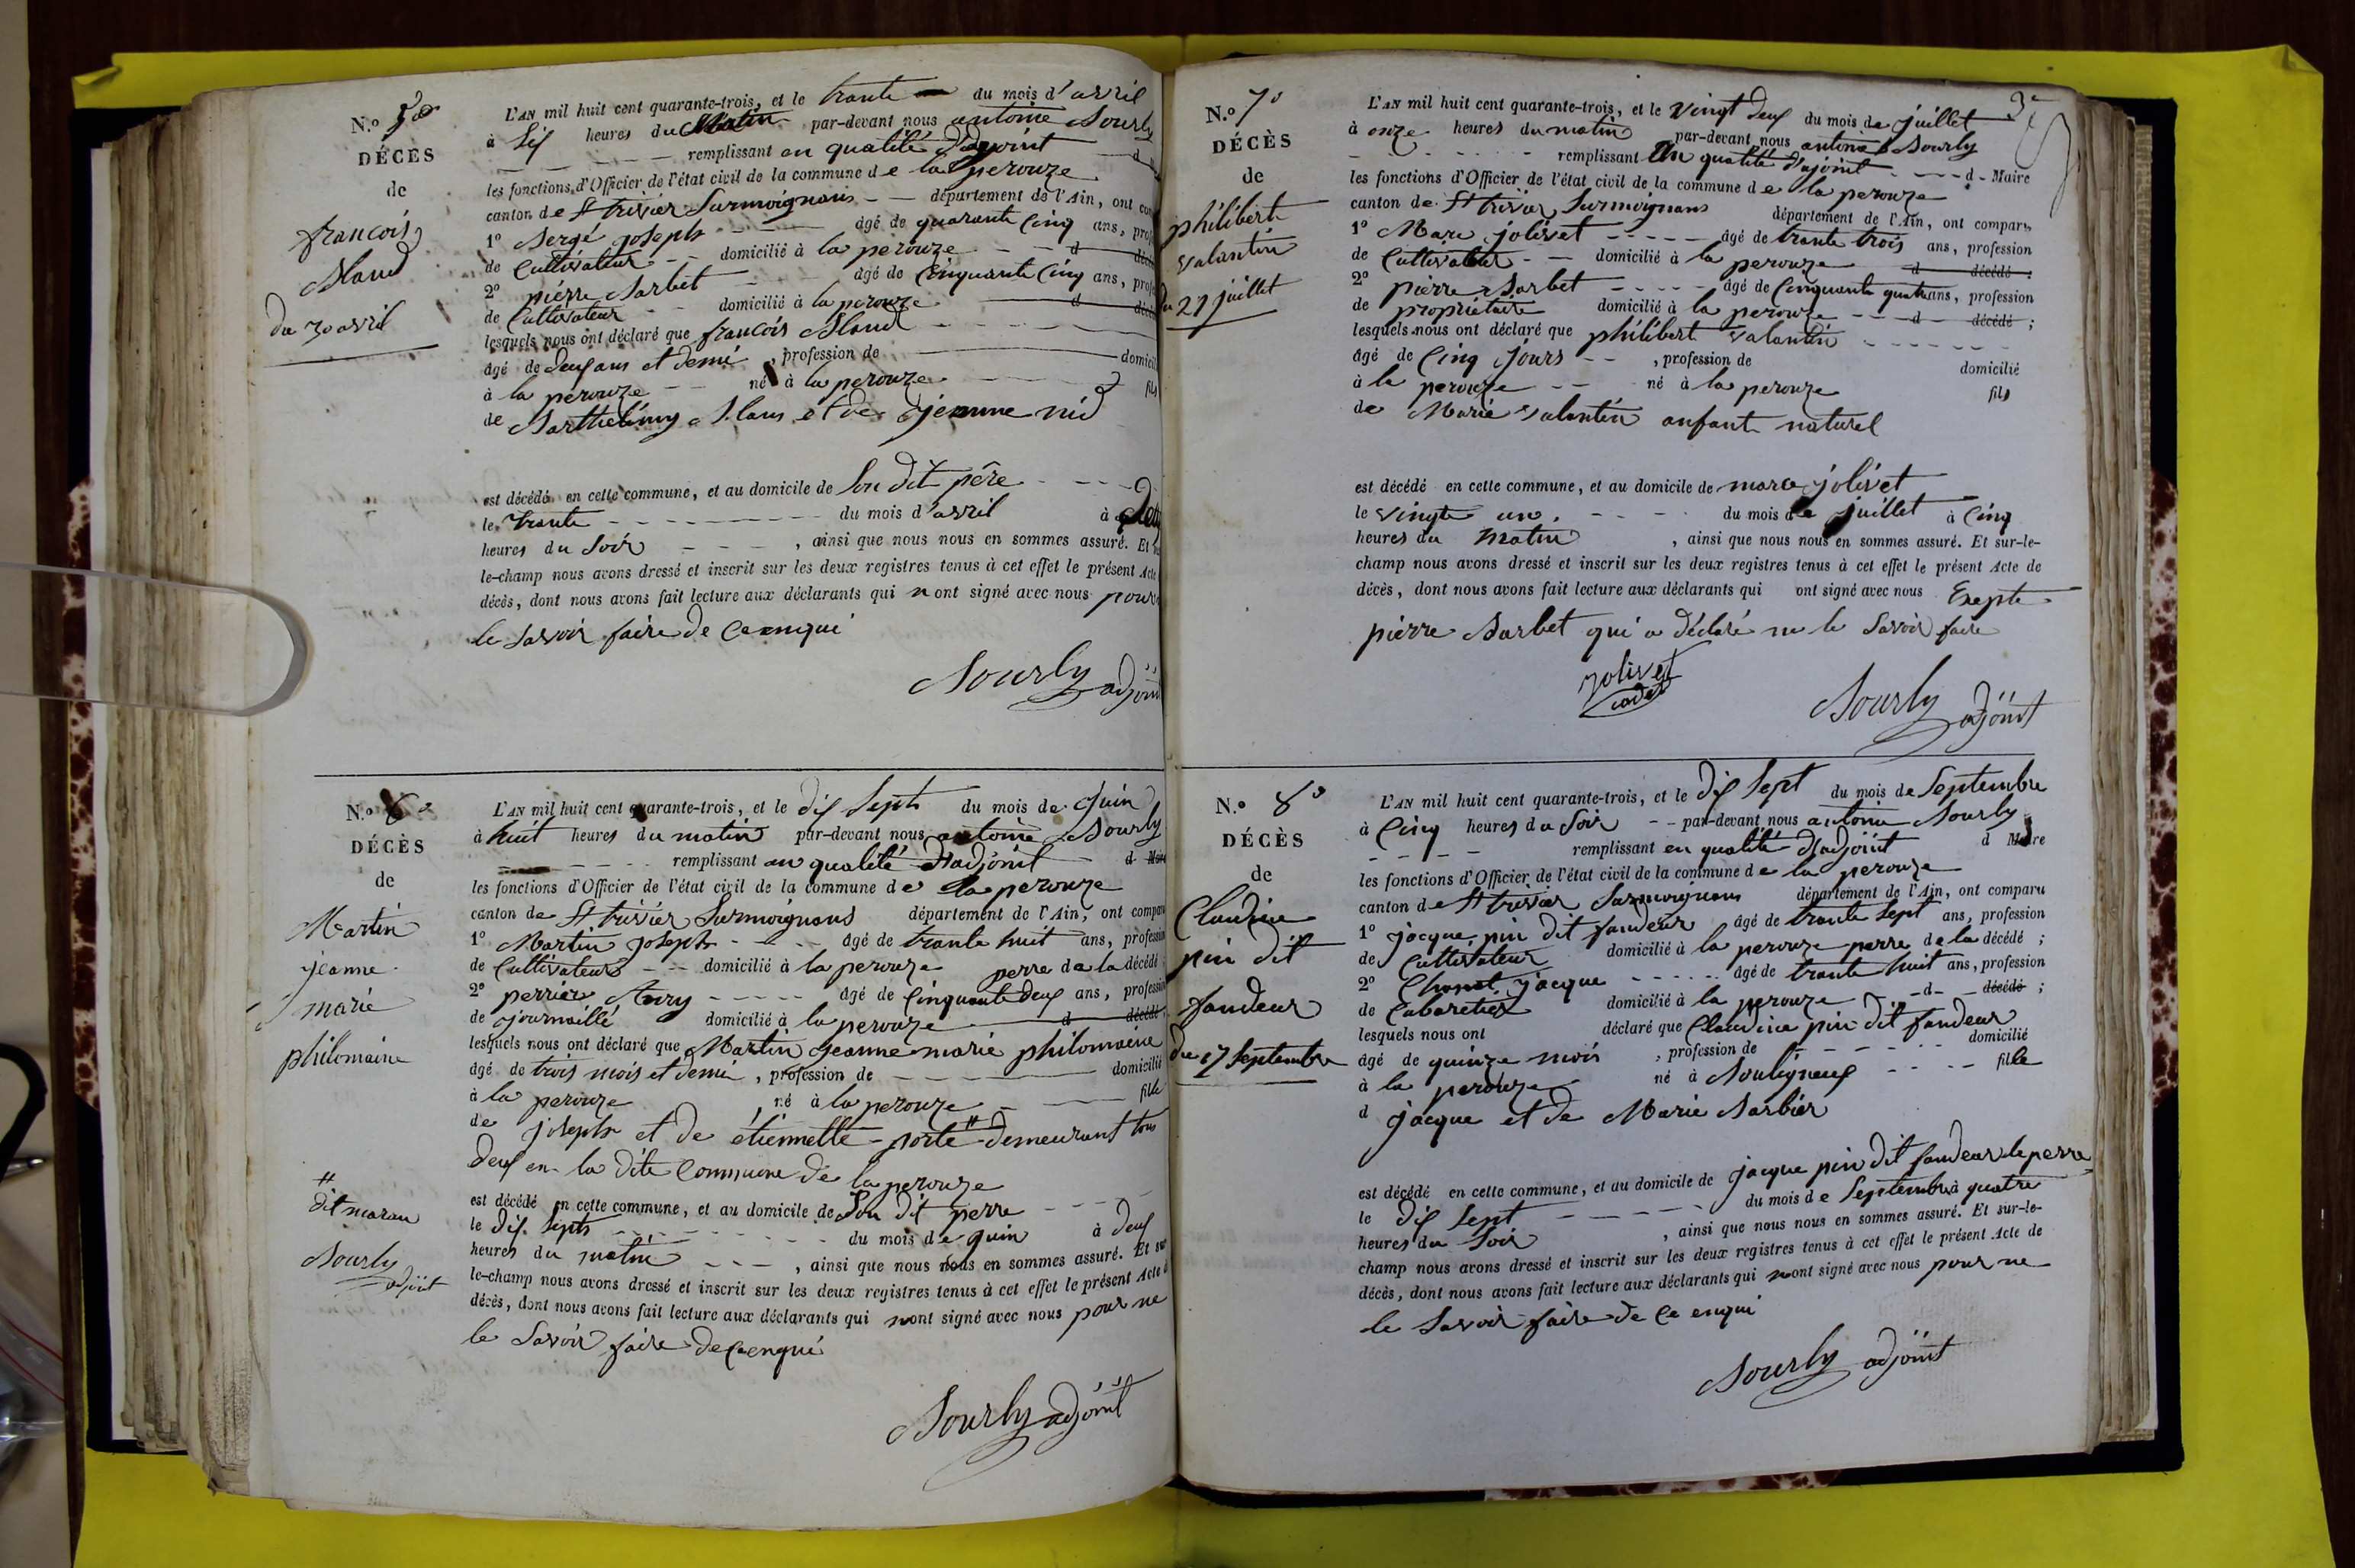 N.º 5º
DÉCÈS
de
françois
Bland
du 30 avril
L'AN mil huit cent quarante-trois, et le trante du mois d'avril
à Six heures du Matin par-devant nous antoine Sourly
remplissant en qualité d'adjoint d
les fonctions d'Officier de l'état civil de la commune de la perouze
canton de St trivier Surmoignans département de l'Ain, ont
1º Sergé joseph âgé de quarante Cinq ans,
de Cultivateur domicilié à la perouze d
2º piérre Barbet âgé de Cinquante Cinq ans,
de Cultivateur domicilié à la perouze d
lesquels nous ont déclaré que françois Bland
âgé de deux ans et demi , profession de domicil
à la perouze né à la perouze fils
de Barthelimy et de jeanne
est décédé en cette commune, et au domicile de Son dit père
le trante du mois d'avril à
heures du Soir , ainsi que nous nous en sommes assuré. Et
le-champ nous avons dressé et inscrit sur les deux registres tenus à cet effet le présent Acte
décès, dont nous avons fait lecture aux déclarants qui n ont signé avec nous pour
le Savoir faire de Ce enqui
Sourly adjoint
N.º 6º
DÉCÈS
de
Martin
jeanne
marie
philomaine
L'AN mil huit cent quarante-trois, et le dix Sept du mois de Juin
à huit heures du matin par-devant nous antoine Sourly
remplissant en qualité D'adjoint d Maire
les fonctions d'Officier de l'état civil de la commune de la perouze
canton de St trivier Surmoignans département de l'Ain, ont comparu
1º Martin joseph âgé de trante huit ans, profession
de Cultivateur domicilié à la perouze perre de la décédé
2º perrier âgé de Cinquante deux ans, profession
de journaillé domicilié à la perouze d décédé
lesquels nous ont déclaré que Martin Jeanne marie philomaine
âgé de trois mois et demi , profession de domicilié
à la perouze , né à la perouze fille
de joseph et de étiennette porte # demeurant tous
deux en la dite Commune de la perouze
# dit maran
Sourly
adjoint
est décédé en cette commune, et au domicile de Son dit perre
le dix Sept du mois de juin à deux
heures du matin , ainsi que nous nous en sommes assuré. Et sur
le-champ nous avons dressé et inscrit sur les deux registres tenus à cet effet le présent Acte d
décès, dont nous avons fait lecture aux déclarants qui n ont signé avec nous pour ne
le Savoir faire de Ce enqui
Sourly adjoint
3e
N.º 7º
DÉCÈS
de
philibert
valantin
du 21 juillet
L'AN mil huit cent quarante-trois, et le vingt deux du mois de juillet
à onze heures du matin par-devant nous antoine Sourly
remplissant En qualité d'ajoint d Maire
les fonctions d'Officier de l'état civil de la commune de la perouze
canton de St trivier Surmoignans département de l'Ain, ont comparu
1º Marc jolivet âgé de trante trois ans, profession
de Cultivateur domicilié à la perouze d décédé ;
2º pierre Barbet âgé de Cinquante quatre ans, profession
de propriétaire domicilié à la perouze d décédé ;
lesquels nous ont déclaré que philibert valantin
âgé de Cinq jours , profession de domicilié
à la perouze né à la perouze fils
de Marie valantin anfant naturel
est décédé en cette commune, et au domicile de marc jolivet
le vingt un du mois de juillet à Cinq
heures du matin , ainsi que nous nous en sommes assuré. Et sur-le-
champ nous avons dressé et inscrit sur les deux registres tenus à cet effet le présent Acte de
décès, dont nous avons fait lecture aux déclarants qui ont signé avec nous Exepte
pierre Barbet qui a déclaré ne le Savoir faire
jolivet
cadet
Sourly adjoint
N.º 8º
DÉCÈS
de
Claudine
pin dit
fandeur
du 17 Septembre
L'AN mil huit cent quarante-trois, et le dix Sept du mois de Septembre
à Cinq heures du Soir par-devant nous antoine Sourly
remplissant en qualité D'adjoint d Maire
les fonctions d'Officier de l'état civil de la commune de la perouze
canton de St trivier Surmoignans département de l'Ain, ont comparu
1º jacque pin dit fandeur âgé de trante Sept ans, profession
de Cultivateur domicilié à la perouze perre de la décédé ;
2º jacque âgé de trante huit ans, profession
de Cabaretier domicilié à la perouze d décédé ;
lesquels nous ont déclaré que Claudine pin dit fandeur
âgé de quinze mois , profession de domicilié
à la perouze né à Bouligneux fille
d jacque et de Marie Barbier
est décédé en cette commune, et au domicile de jacque pin dit fandeur le perre
le dix Sept du mois de Septembre à quatre
heures du Soir , ainsi que nous nous en sommes assuré. Et sur-le-
champ nous avons dressé et inscrit sur les deux registres tenus à cet effet le présent Acte de
décès, dont nous avons fait lecture aux déclarants qui n ont signé avec nous pour ne
le Savoir faire de Ce enqui
Sourly adjoint